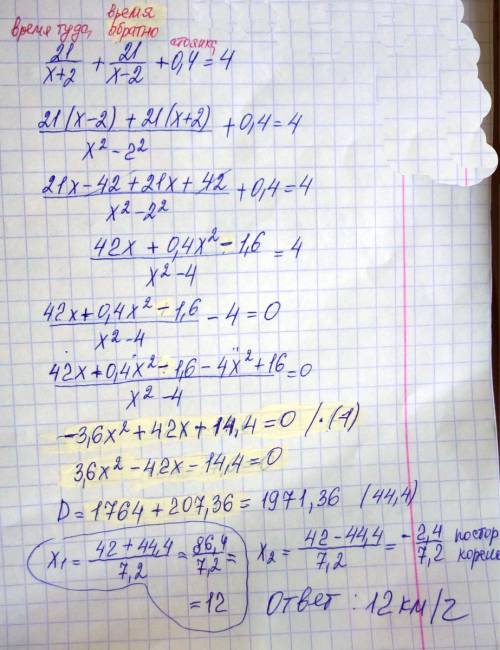 время туда, время обратно стоянка
21/(x+2) + 21/(x-2) + 0,4 = 4
(21(x-2) + 21(x+2))/(x²-2²) + 0,4 = 4
(21x-42+21x+42)/(x²-2²) + 0,4 = 4
(42x + 0,4x² - 1,6)/(x²-4) = 4
(42x+0,4x²-1,6)/(x²-4) - 4 = 0
(42x+0,4x²-1,6-4x²+16)/(x²-4) = 0
-3,6x²+42x+14,4=0 /·(-1)
3,6x²-42x-14,4=0
D=1764+207,36=1971,36 (44,4)
x₁ = (42+44,4)/7,2 = 86,4/7,2 = x₂ = (42-44,4)/7,2 = -2,4/7,2 постор
корен
=12 Ответ: 12 км/г